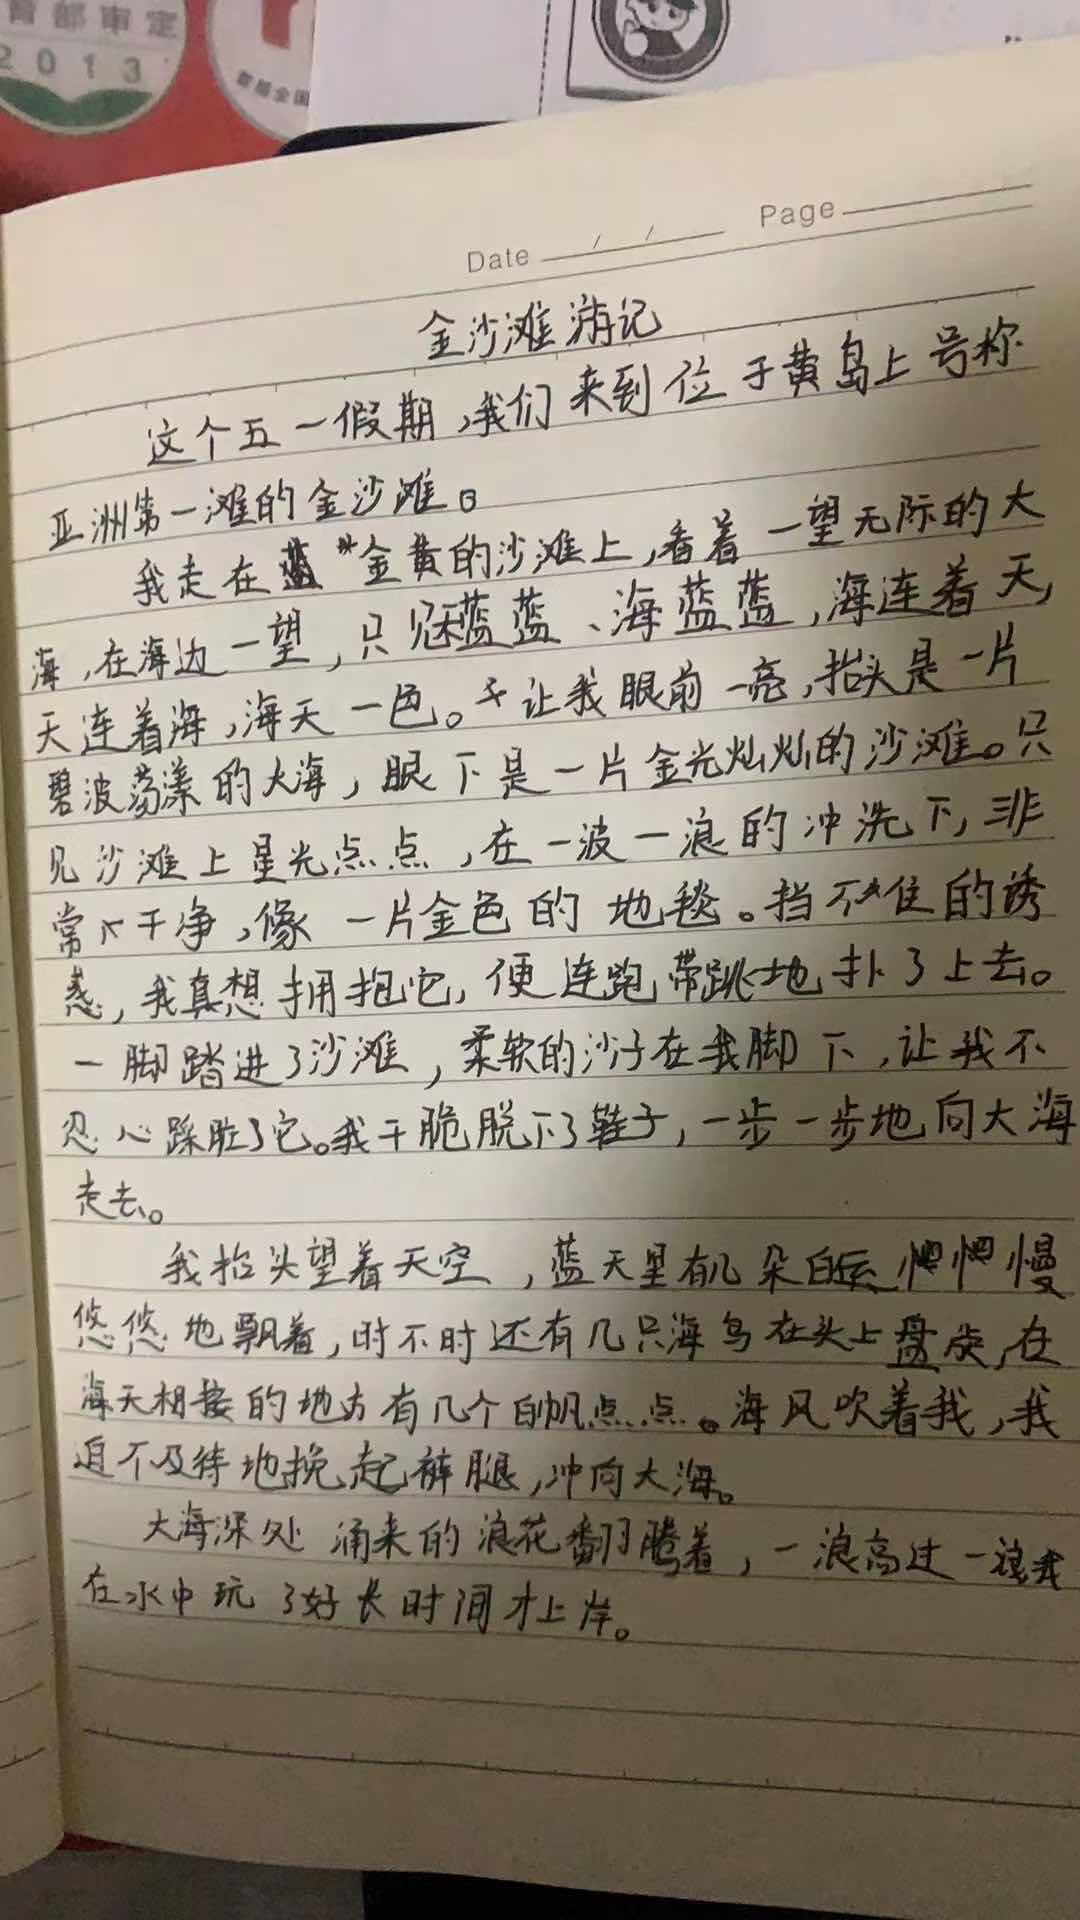 育部审定
2013
首届全国
Date / / Page
金沙滩游记
这个五一假期,我们来到位于黄岛上号称
亚洲第一滩的金沙滩。
我走在金黄的沙滩上,看着一望无际的大
海,在海边一望,只见天蓝蓝、海蓝蓝,海连着天,
天连着海,海天一色。让我眼前一亮,抬头是一片
碧波荡漾的大海,眼下是一片金光灿灿的沙滩。只
见沙滩上星光点点,在一波一浪的冲洗下,非
常干净,像一片金色的地毯。挡不住的诱
惑,我真想拥抱它,便连跑带跳地扑了上去。
一脚踏进了沙滩,柔软的沙子在我脚下,让我不
忍心踩脏了它。我干脆脱下了鞋子,一步一步地向大海
走去。
我抬头望着天空,蓝天里有几朵白云慢
悠悠地飘着,时不时还有几只海鸟在头上盘旋,在
海天相接的地方有几个白帆点点。海风吹着我,我
迫不及待地挽起裤腿,冲向大海。
大海深处涌来的浪花翻腾着,一浪高过一浪我
在水中玩了好长时间才上岸。